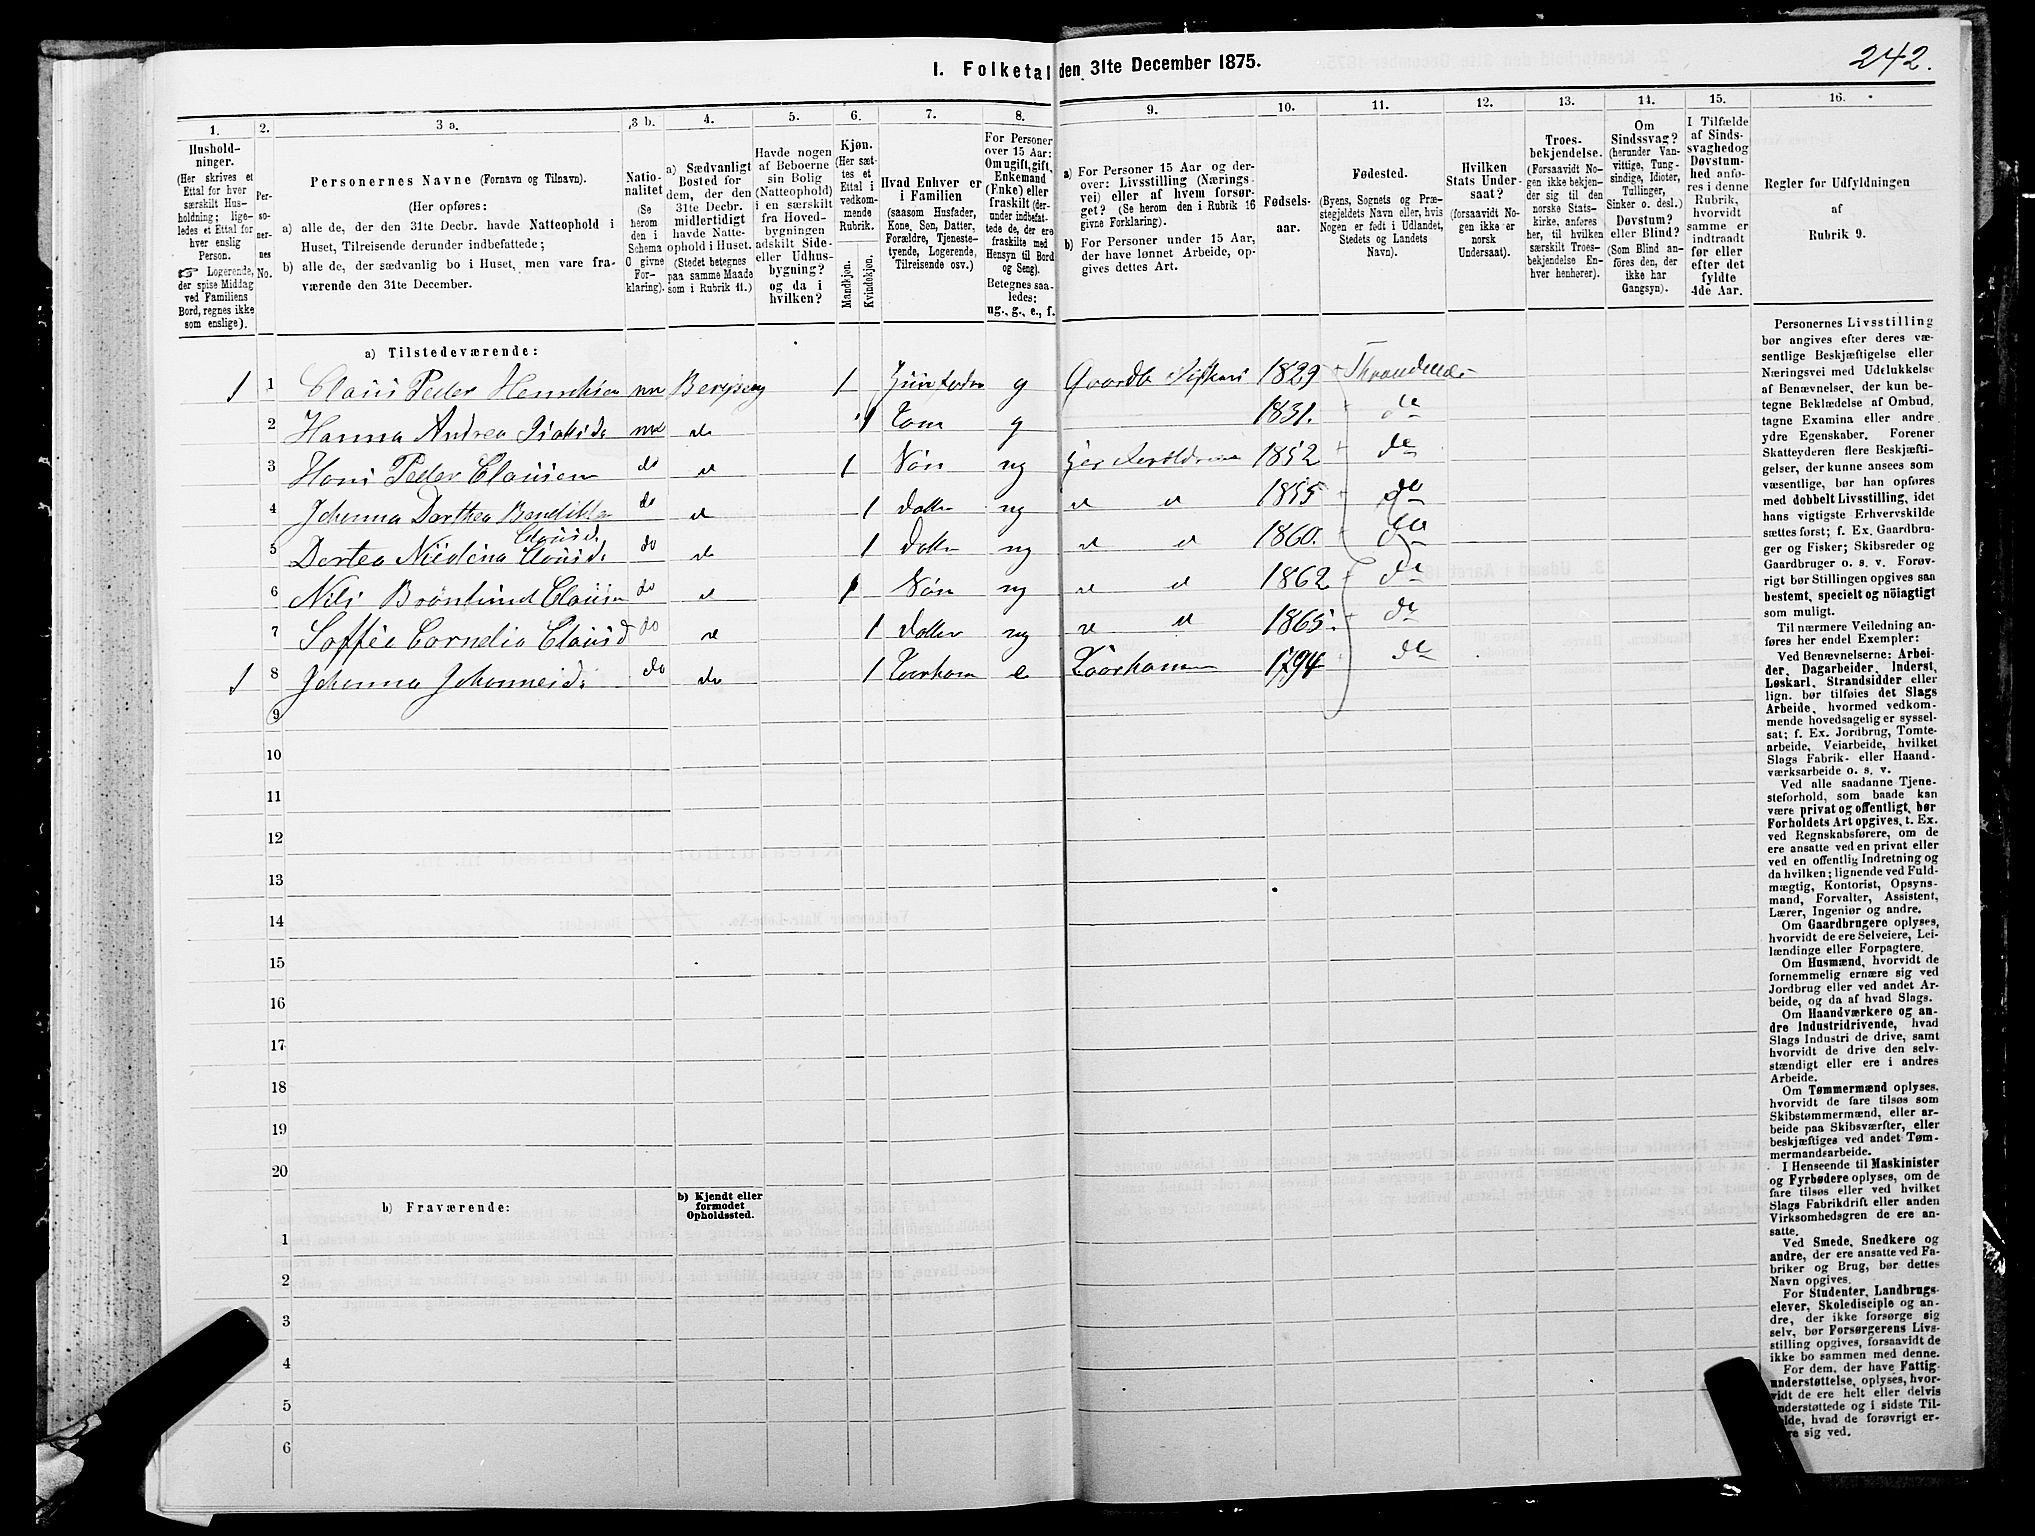 242.
I. Folketal den 31te December 1875.
1. 2. 3 a. 3 b. 4. 5. 6. 7. 8. 9. 10. 11. 12. 13. 14. 15. 16.
Hushold-
ninger.
(Her skrives et
Ettal for hver
særskilt Hus-
holdning; lige-
ledes et Ettal for
hver enslig
Person.
☞ Logerende,
der spise Middag
ved Familiens
Bord, regnes ikke
som enslige).
Per-
so-
ner-
nes
No.
Personernes Navne (Fornavn og Tilnavn).
(Her opføres:
a) alle de, der den 31te Decbr. havde Natteophold i
Huset, Tilreisende derunder indbefattede;
b) alle de, der sædvanlig bo i Huset, men vare fra-
værende den 31te December.
Natio-
nalitet
(Se
herom
den i
Schema
O givne
For-
klaring).
a) Sædvanligt
Bosted for
dem, der den
31te Decbr.
midlertidigt
havde Natte-
ophold i Huset.
(Stedet betegnes
paa samme Maade
som i Rubrik 11.)
Havde nogen
af Beboerne
sin Bolig
(Natteophold)
i en særskilt
fra Hoved-
bygningen
adskilt Side-
eller Udhus-
bygning?
og da i
hvilken?
Kjøn.
(Her sæt-
tes et
Ettal i
vedkom-
mende
Rubrik.
Mandkjøn.
Kvindekjøn.
Hvad Enhver er
i Familien
(saasom Husfader,
Kone, Søn, Datter,
Forældre, Tjeneste-
tyende, Logerende,
Tilreisende osv.)
For Personer
over 15 Aar:
Om ugift, gift,
Enkemand
(Enke) eller
fraskilt (der-
under indbefat-
tede de, der ere
fraskilte med
Hensyn til Bord
og Seng).
Betegnes saa-
ledes:
ug., g., e., f.
a) For Personer 15 Aar og der-
over: Livsstilling (Nærings-
vei) eller af hvem forsør-
get? (Se herom den i Rubrik 16
givne Forklaring).
b) For Personer under 15 Aar,
der have lønnet Arbeide, op-
gives dettes Art.
Fødsels-
aar.
Fødested.
(Byens, Sognets og Præ-
stegjeldets Navn eller, hvis
Nogen er født i Udlandet,
Stedets og Landets
Navn).
Hvilken
Stats Under-
saat?
(forsaavidt No-
gen ikke er
norsk
Undersaat).
Troes-
bekjendelse.
(Forsaavidt No-
gen ikke bekjen-
der sig til den
norske Stats-
kirke, anføres
her, til hvilken
særskilt Troes-
bekjendelse En-
hver henhører).
Om
Sindssvag?
(herunder Van-
vittige, Tung-
sindige, Idioter,
Tullinger,
Sinker o. desl.)
Døvstum?
eller Blind?
(Som Blind an-
føres den, der
ikke har
Gangsyn).
I Tilfælde
af Sinds-
svaghed og
Døvstum-
hed anfø-
res i denne
Rubrik,
hvorvidt
samme er
indtraadt
før eller
efter det
fyldte
4de Aar.
Regler for Udfyldningen
af
Rubrik 9.
a) Tilstedeværende:
1 1 Claus Peder Henriksen nn Bergseng 1 g 1829 Throndenæs
2 Hanna Andrea do 1 Kone g 1831. do
3 Hans Peder Clausen do do 1 Søn ug 1852 do
4 Johanna Dorthea Clausd. do do 1 datter ug do do 1855 do
5 Dortea Clausd. do do 1 datter ug do do 1860. do
6 Nils Brønlund Clausen do do 1 Søn ug do do 1862 do
7 Soffie Cornelia Clausd do do 1 datter ug do do 1865. do
1 8 Johanna Johannesd. do do 1 e 1794 do
9
10
11
12
13
14
15
16
17
18
19
20
b) Fraværende:
b) Kjendt eller
formodet
Opholdssted.
1
2
3
4
5
6
Personernes Livsstilling
bør angives efter deres væ-
sentlige Beskjæftigelse eller
Næringsvei med Udelukkelse
af Benævnelser, der kun be-
tegne Beklædelse af Ombud,
tagne Examina eller andre
ydre Egenskaber. Forener
Skatteyderen flere Beskjæfti-
gelser, der kunne ansees som
væsentlige, bør han opføres
med dobbelt Livsstilling, idet
hans vigtigste Erhvervskilde
sættes først; f. Ex. Gaardbru-
ger og Fisker; Skibsreder og
Gaardbruger o. s. v. Forøv-
rigt bør Stillingen opgives saa
bestemt, specielt og nöiagtigt
som muligt.
Til nærmere Veiledning an-
føres her endel Exempler:
Ved Benævnelserne: Arbei-
der, Dagarbeider, Inderst,
Løskarl, Strandsidder eller
lign. bør tilføies det Slags
Arbeide, hvormed vedkom-
mende hovedsagelig er syssel-
sat; f. Ex. Jordbrug, Tomte-
arbeide, Veiarbeide, hvilket
Slags Fabrik- eller Haand-
værksarbeide o. s. v.
Ved alle saadanne Tjene-
steforhold, som baade kan
være privat og offentligt, bør
Forholdets Art opgives, t. Ex.
ved Regnskabsførere, om de
ere ansatte ved en privat eller
ved en offentlig Indretning og
da hvilken; lignende ved Fuld-
mægtig, Kontorist, Opsyns-
mand, Forvalter, Assistent,
Lærer, Ingeniør og andre.
Om Gaardbrugere oplyses,
hvorvidt de ere Selveiere, Lei-
lændinge eller Forpagtere.
Om Husmænd, hvorvidt de
fornemmelig ernære sig ved
Jordbrug eller ved andet Ar-
beide, og da af hvad Slags.
Om Haandværkere og an-
dre Industridrivende, hvad
Slags Industri de drive, samt
hvorvidt de drive den selv-
stændigt eller ere i andres
Arbeide.
Om Tømmermænd oplyses,
hvorvidt de fare tilsøs som
Skibstømmermænd, eller ar-
beide paa Skibsværfter, eller
beskjæftiges ved andet Tøm-
mermandsarbeide.
I Henseende til Maskinister
og Fyrbødere oplyses, om de
fare tilsøs eller ved hvilket
Slags Fabrikdrift eller anden
Virksomhedsgren de ere an-
satte.
Ved Smede, Snedkere og
andre, der ere ansatte ved Fa-
briker og Brug, bør dettes
Navn opgives.
For Studenter, Landbrugs-
elever, Skoledisciple og an-
dre, der ikke forsørge sig
selv, bør Forsørgerens Livs-
stilling opgives, forsaavidt de
ikke bo sammen med denne.
For dem, der have Fattig-
understøttelse, oplyses, hvor-
vidt de ere helt eller delvis
understøttede og i sidste Til-
fælde, hvad de forøvrigt er-
nære sig ved.